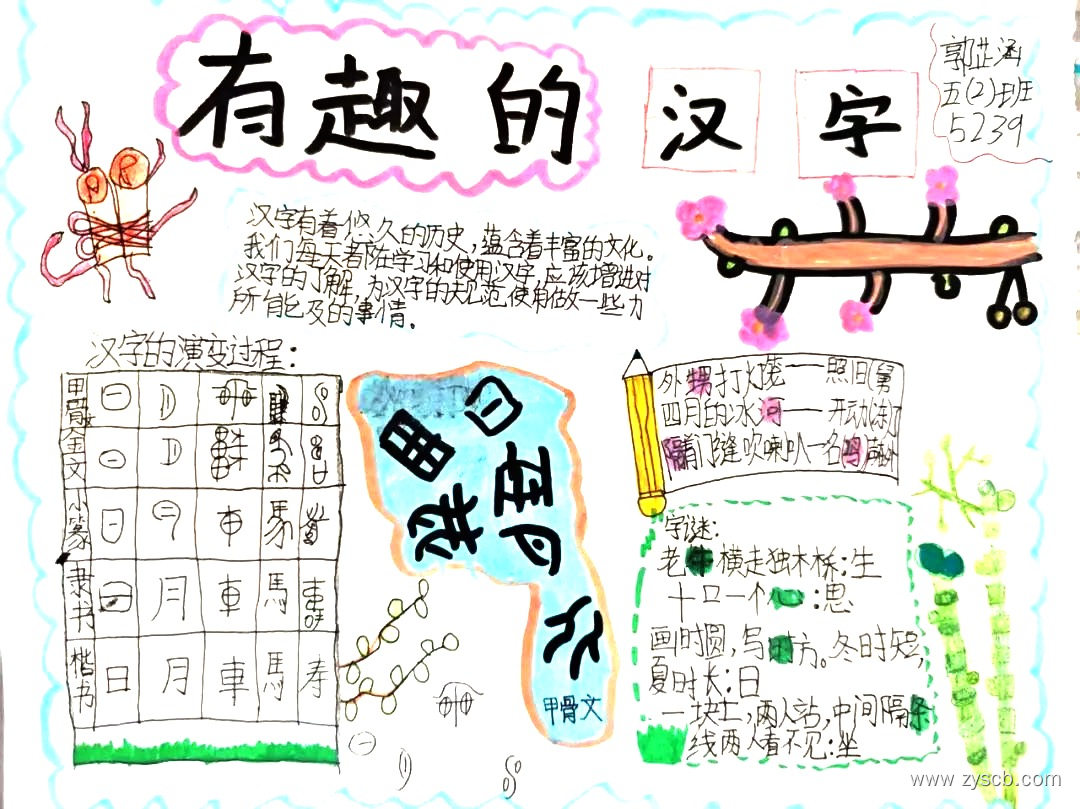 有趣的汉字
郭芷涵
五(2)班
5239
汉字有着悠久的历史,蕴含着丰富的文化。
我们每天都在学习和使用汉字,应该增进对
汉字的了解,为汉字的规范使用做一些力
所能及的事情.
汉字的演变过程:
甲骨文
金文
小篆
隶书 日 月 車 馬 壽
楷书 日 月 車 馬 寿
甲骨文
外甥打灯笼——照旧(舅)
四月的冰河——开动(冻)了
隔着门缝吹喇叭—名鸣声在外
字谜:
老牛横走独木桥:生
十口一个心:思
画时圆,写时方。冬时短,
夏时长:日
一块土,两人站,中间隔条
线两人看不见:坐
www.zyscb.com